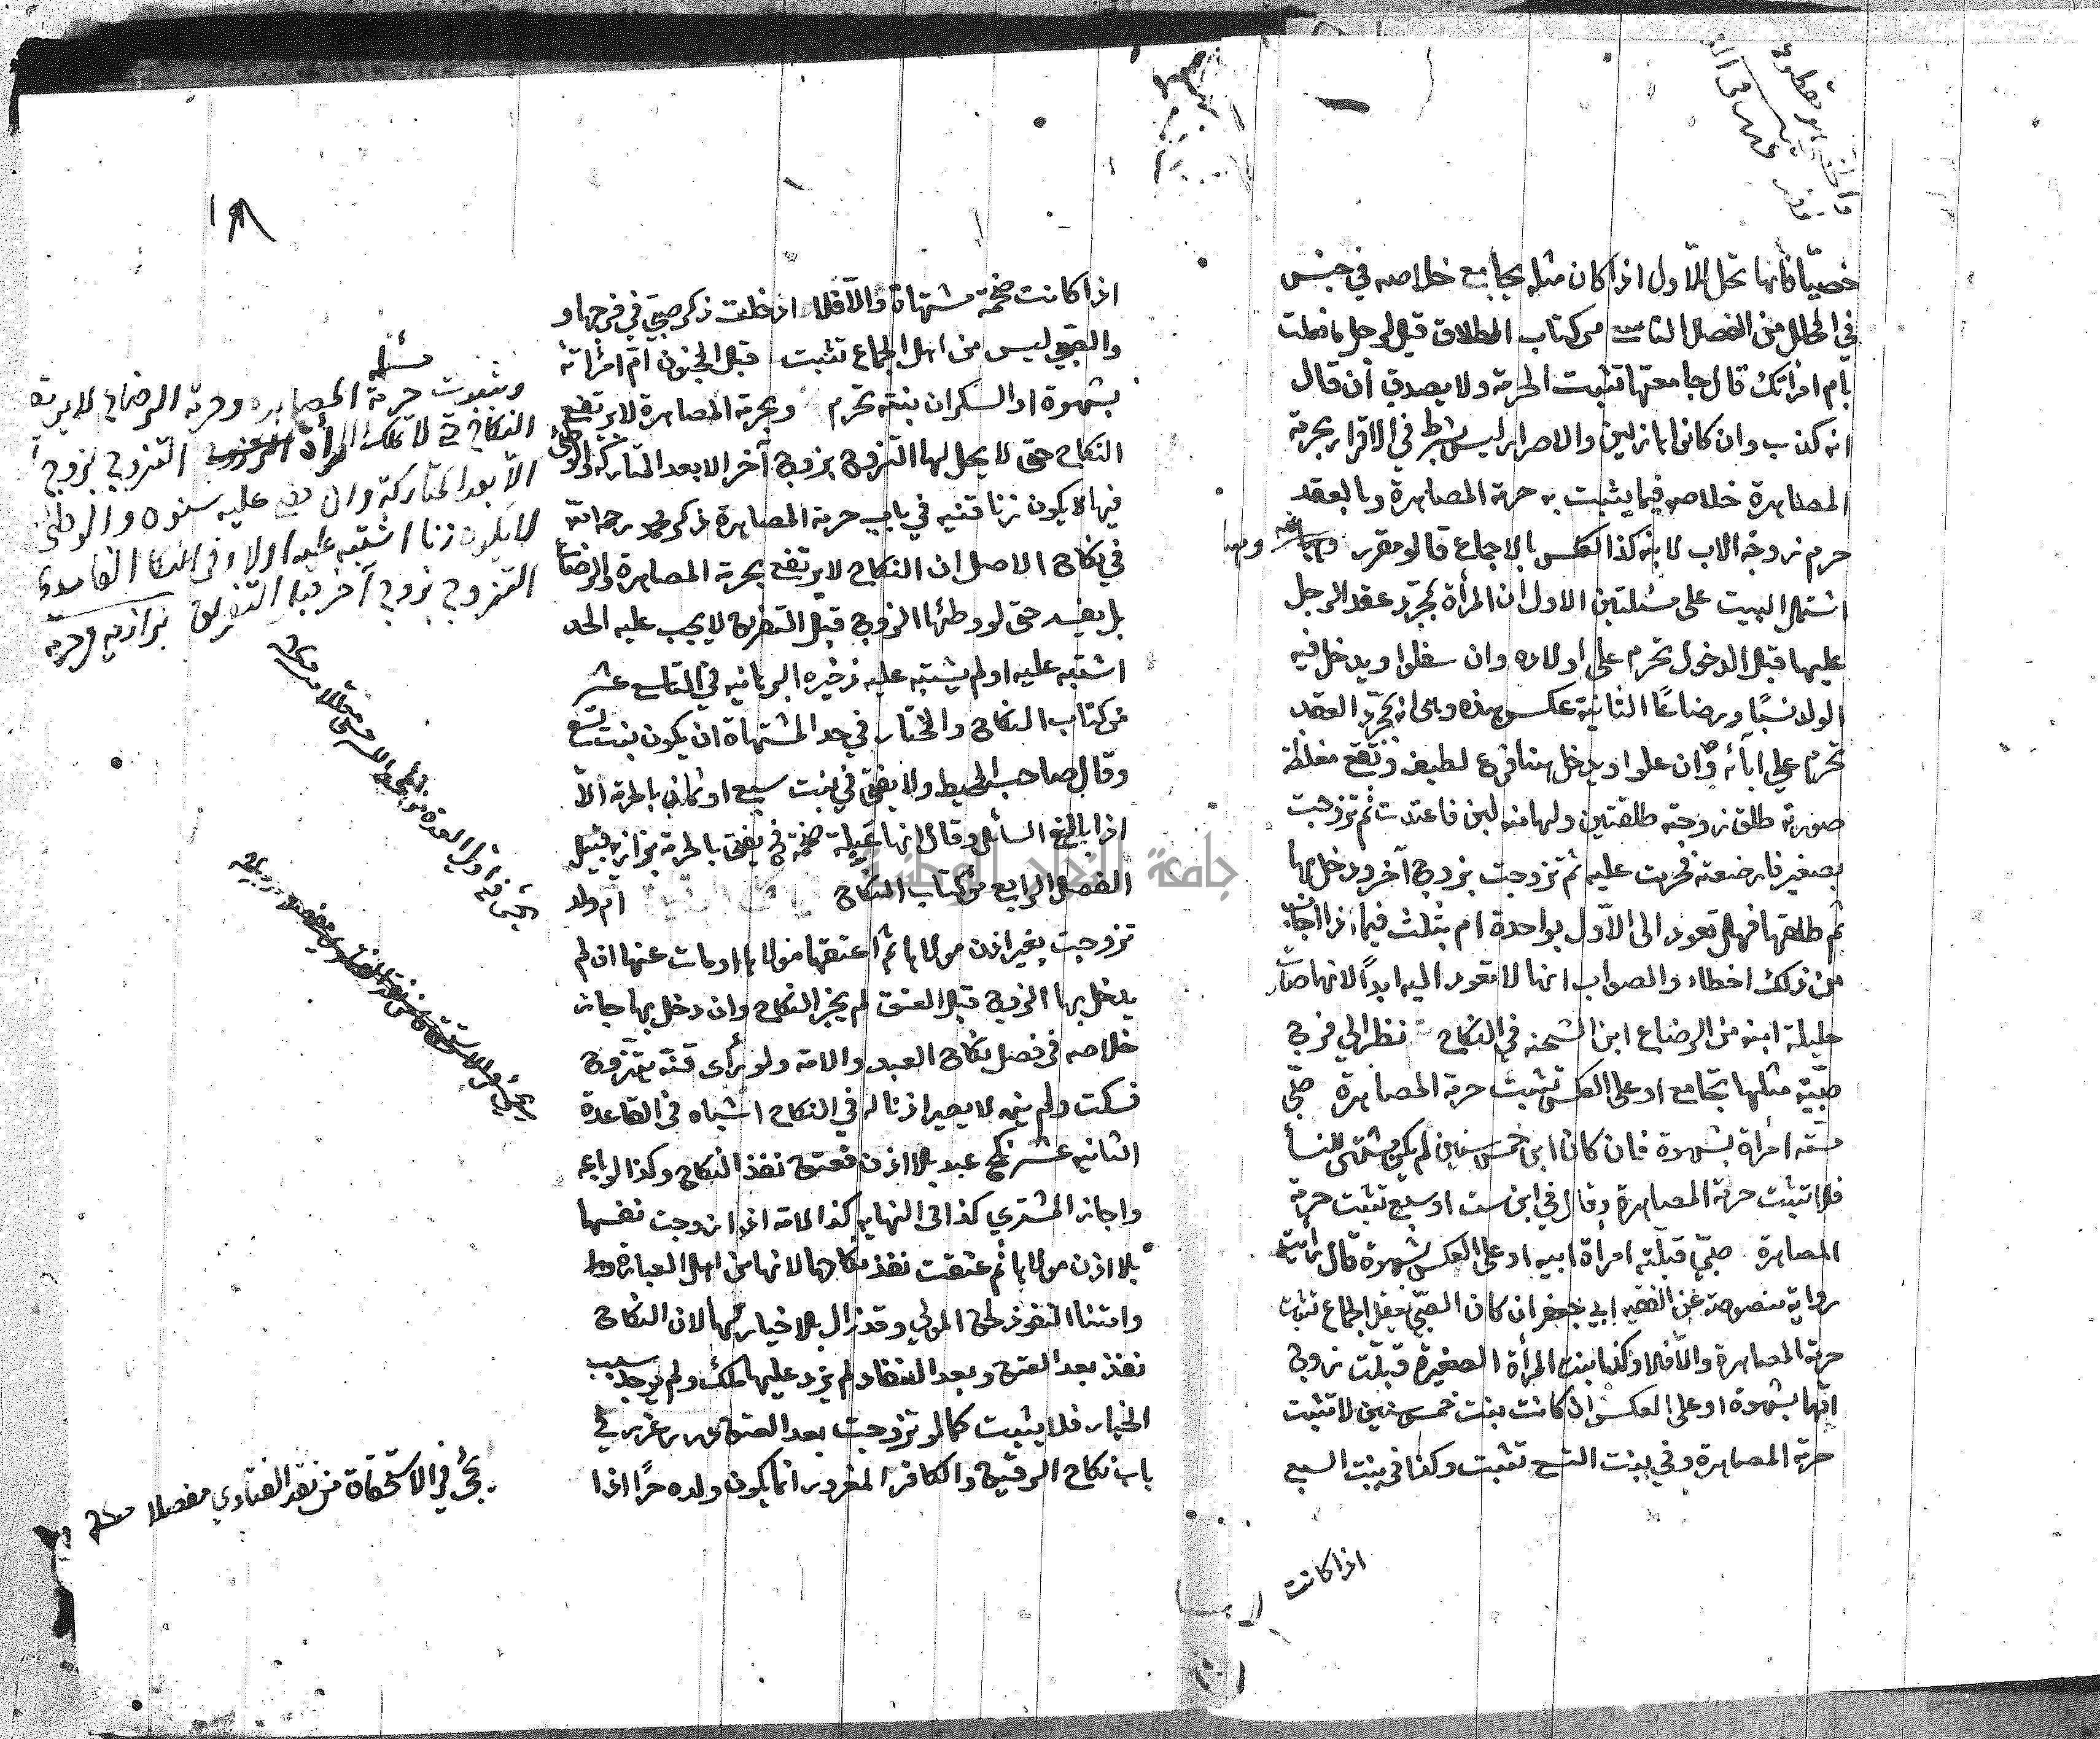 خصيّا فانها تحل للاول اذا كان مثله يجامع خلاصه في جنس
في المحلل من الفصل التاسع من كتاب الطلاق قيل لرجل ما فعلت
بام امرأتك قال جامعتها تثبت الحرمة ولا يصدق أن قال
انه كذب وان كانوا هازلين والاصرار ليس بشرط في الاقرار بحرمة
المصاهرة خلاصه فيما يثبت به حرمة المصاهرة وبالعقد
حرم زوجة الاب لابنه كذا العكس بالاجماع قالو مقرر
اشتمل البيت على مسئلتين الاول ان المرأة بمجرد عقد الرجل
عليها قبل الدخول تحرم على اولاده وان سفلوا ويدخل فيه
الولد نسبًا ورضاعًا الثانية عكس هذه وهى انه بمجرّد العقد
تحرم علي ابآئه وان علوا ويدخل هنا فرع لطيف وتقع مغلطة
صورته طلق زوجته طلقتين ولها منه لبن فاعتدت ثم تزوجت
بصغير فارضعته فحرمت عليه ثم تزوجت بزوج آخر ودخل بها
ثم طلقها فهل تعود الى الاّول بواحدة ام بثلث فيما اذا اجاب
عن ذلك اخطاء والصواب انها لا تعود اليه ابداً لانها صارت
حليلة ابنه من الرضاع ابن الشحنه في النكاح نظر الي فرج
صبيّة مثلها تجامع او على العكس تثبت حرمة المصاهرة صبّى
مسّته امرأة بشهوة فان كان ابن خمس سنين لم يكن مشتهى للنسأ
فلا تثبت حرمة المصاهرة وقال في ابن ست او سبع تثبت حرمة
المصاهرة صبّي قبلته امرأة ابيه او على العكس بشهوة قال رأيت
رواية منصوصة عن الفقيه ابي جعفر ان كان الصبّي يعقل الجماع تثبت
حرمة المصاهرة والاّ فلا وكذا بنت المرأة الصغيرة قبلّت زوج
امّها بشهوة او على العكس ان كانت بنت خمس سنين لا تثبت
حرمة المصاهرة وفي بنت التسع تثبت وكذا في بنت السبع
اذا كانت
اذا كانت ضخمة مشتهاة والاّ فلا ادخلت ذكر صبيّ في فرجها و
والصبّي ليس من اهل الجماع تثبت قبل المجنون امّ امرأته
بشهوة او السكران بنته تحرم وبحرمة المصاهرة لا يرتفع
النكاح حتى لا يحل لها التزوج بزوج آخر الا بعد المتاركة والوطئ
فيها لا يكون زنا قنيه في باب حرمة المصاهرة ذكر محمد رحمه الله
في نكاح الاصل ان النكاح لا يرتفع بحرمة المصاهرة والرضاع
بل يفسد حتى لو وطئها الزوج قبل التفريق لا يجب عليه الحد
اشتبه عليه او لم يشتبه عليه ذخيره البرهانيه في التاسع عشر
من كتاب النكاح والمختار في حد المشتهاة ان يكون بنت تسع
وقال صاحب المحيط ولا يفتى في بنت سبع او ثماني بالحرمة الاّ
اذا بالغ السائل وقال انها عبلة ضخمة فح يفتى بالحرمة بزازيه قبيل
الفصل الرابع من كتاب النكاح ام ولد
تزوجت بغير اذن مولاها ثم اعتقها مولاها او مات عنها ان لم
يدخل بها الزوج قبل العتق لم يجز النكاح وان دخل بها جاز
خلاصه فى فصل نكاح العبد والامة ولو رأى قنّه يتزوج
فسكت ولم ينهه لا يصير اذنا له في النكاح اشباه في القاعدة
الثانيه عشر نكح عبد بلا اذن فعتق نفذ النكاح وكذا لو باعه
واجاز المشتري كذا فى النهايه كذا الامة اذا زوجت نفسها
بلا اذن مولاها ثم عتقت نفذ نكاحها لانها من اهل العبارة
وامتناع النفوذ لحق المولي وقد زال بلا خيار لها لان النكاح
نفذ بعد العتق وبعد النفاذ لم يزد عليها ملك ولم يوجد سبب
الخيار فلا يثبت كما لو تزوجت بعد العتق درر غرر في
باب نكاح الرقيق والكافر المغرور انما يكون ولده حرًا اذا
مسئله
وبثبوت حرمة المصاهره وحرمة الرضاع لا يرتفع
النكاح حتى لا تملك المرأة التزوج بزوج
الاّ بعد المتاركة وان مضى عليه سنون والوطئ
لا يكون زنا اشتبه عليه اولا وفى النكاح الفاسد
التزوج بزوج آخر قبل التفريق بزازيه
يجئ في الاستحقاق من نقد الفتاوي مفصلا